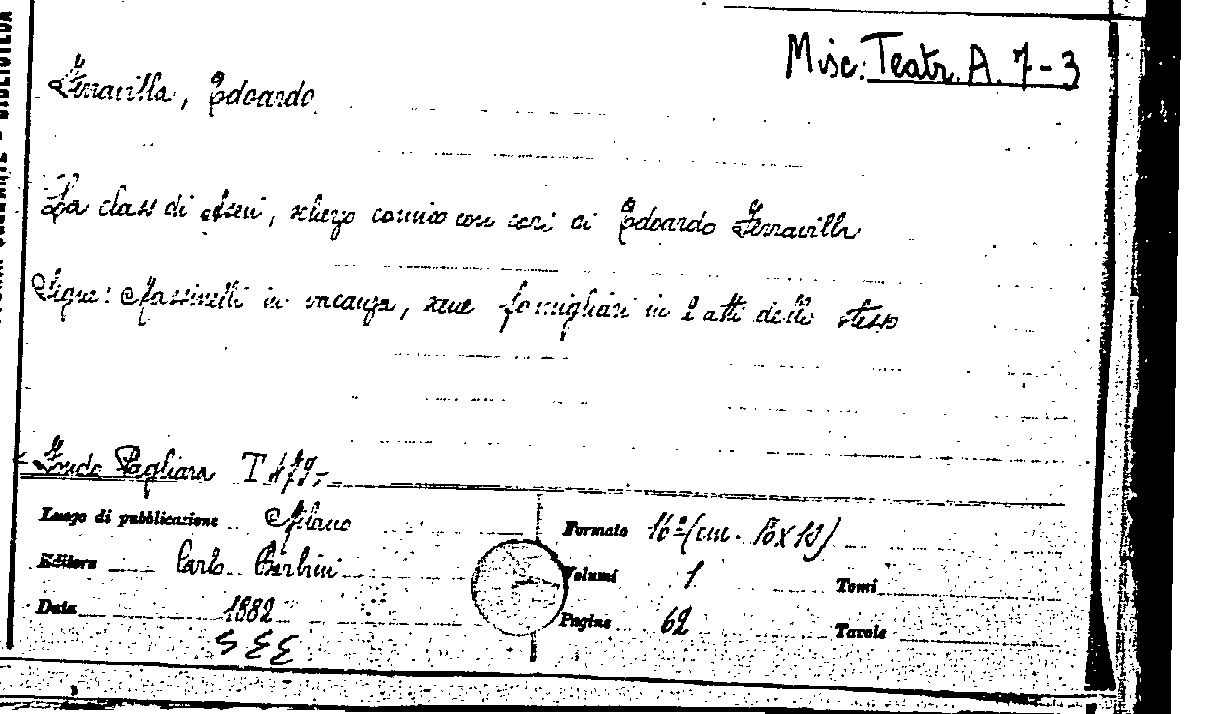 Misc. Teatr. A. 7-3
Ferravilla, Edoardo
La class di Asen, scherzo comico con cori di Edoardo Ferravilla
Segue: Massinelli in vacanza, scene famigliari in 2 atti dello stesso
Fondo Pagliara
Luogo di pubblicazione Milano
Formato 16º (cm.
Editore Carlo Barbini
Volumi 1
Tomi
Data 1882
Pagine 62
Tavole